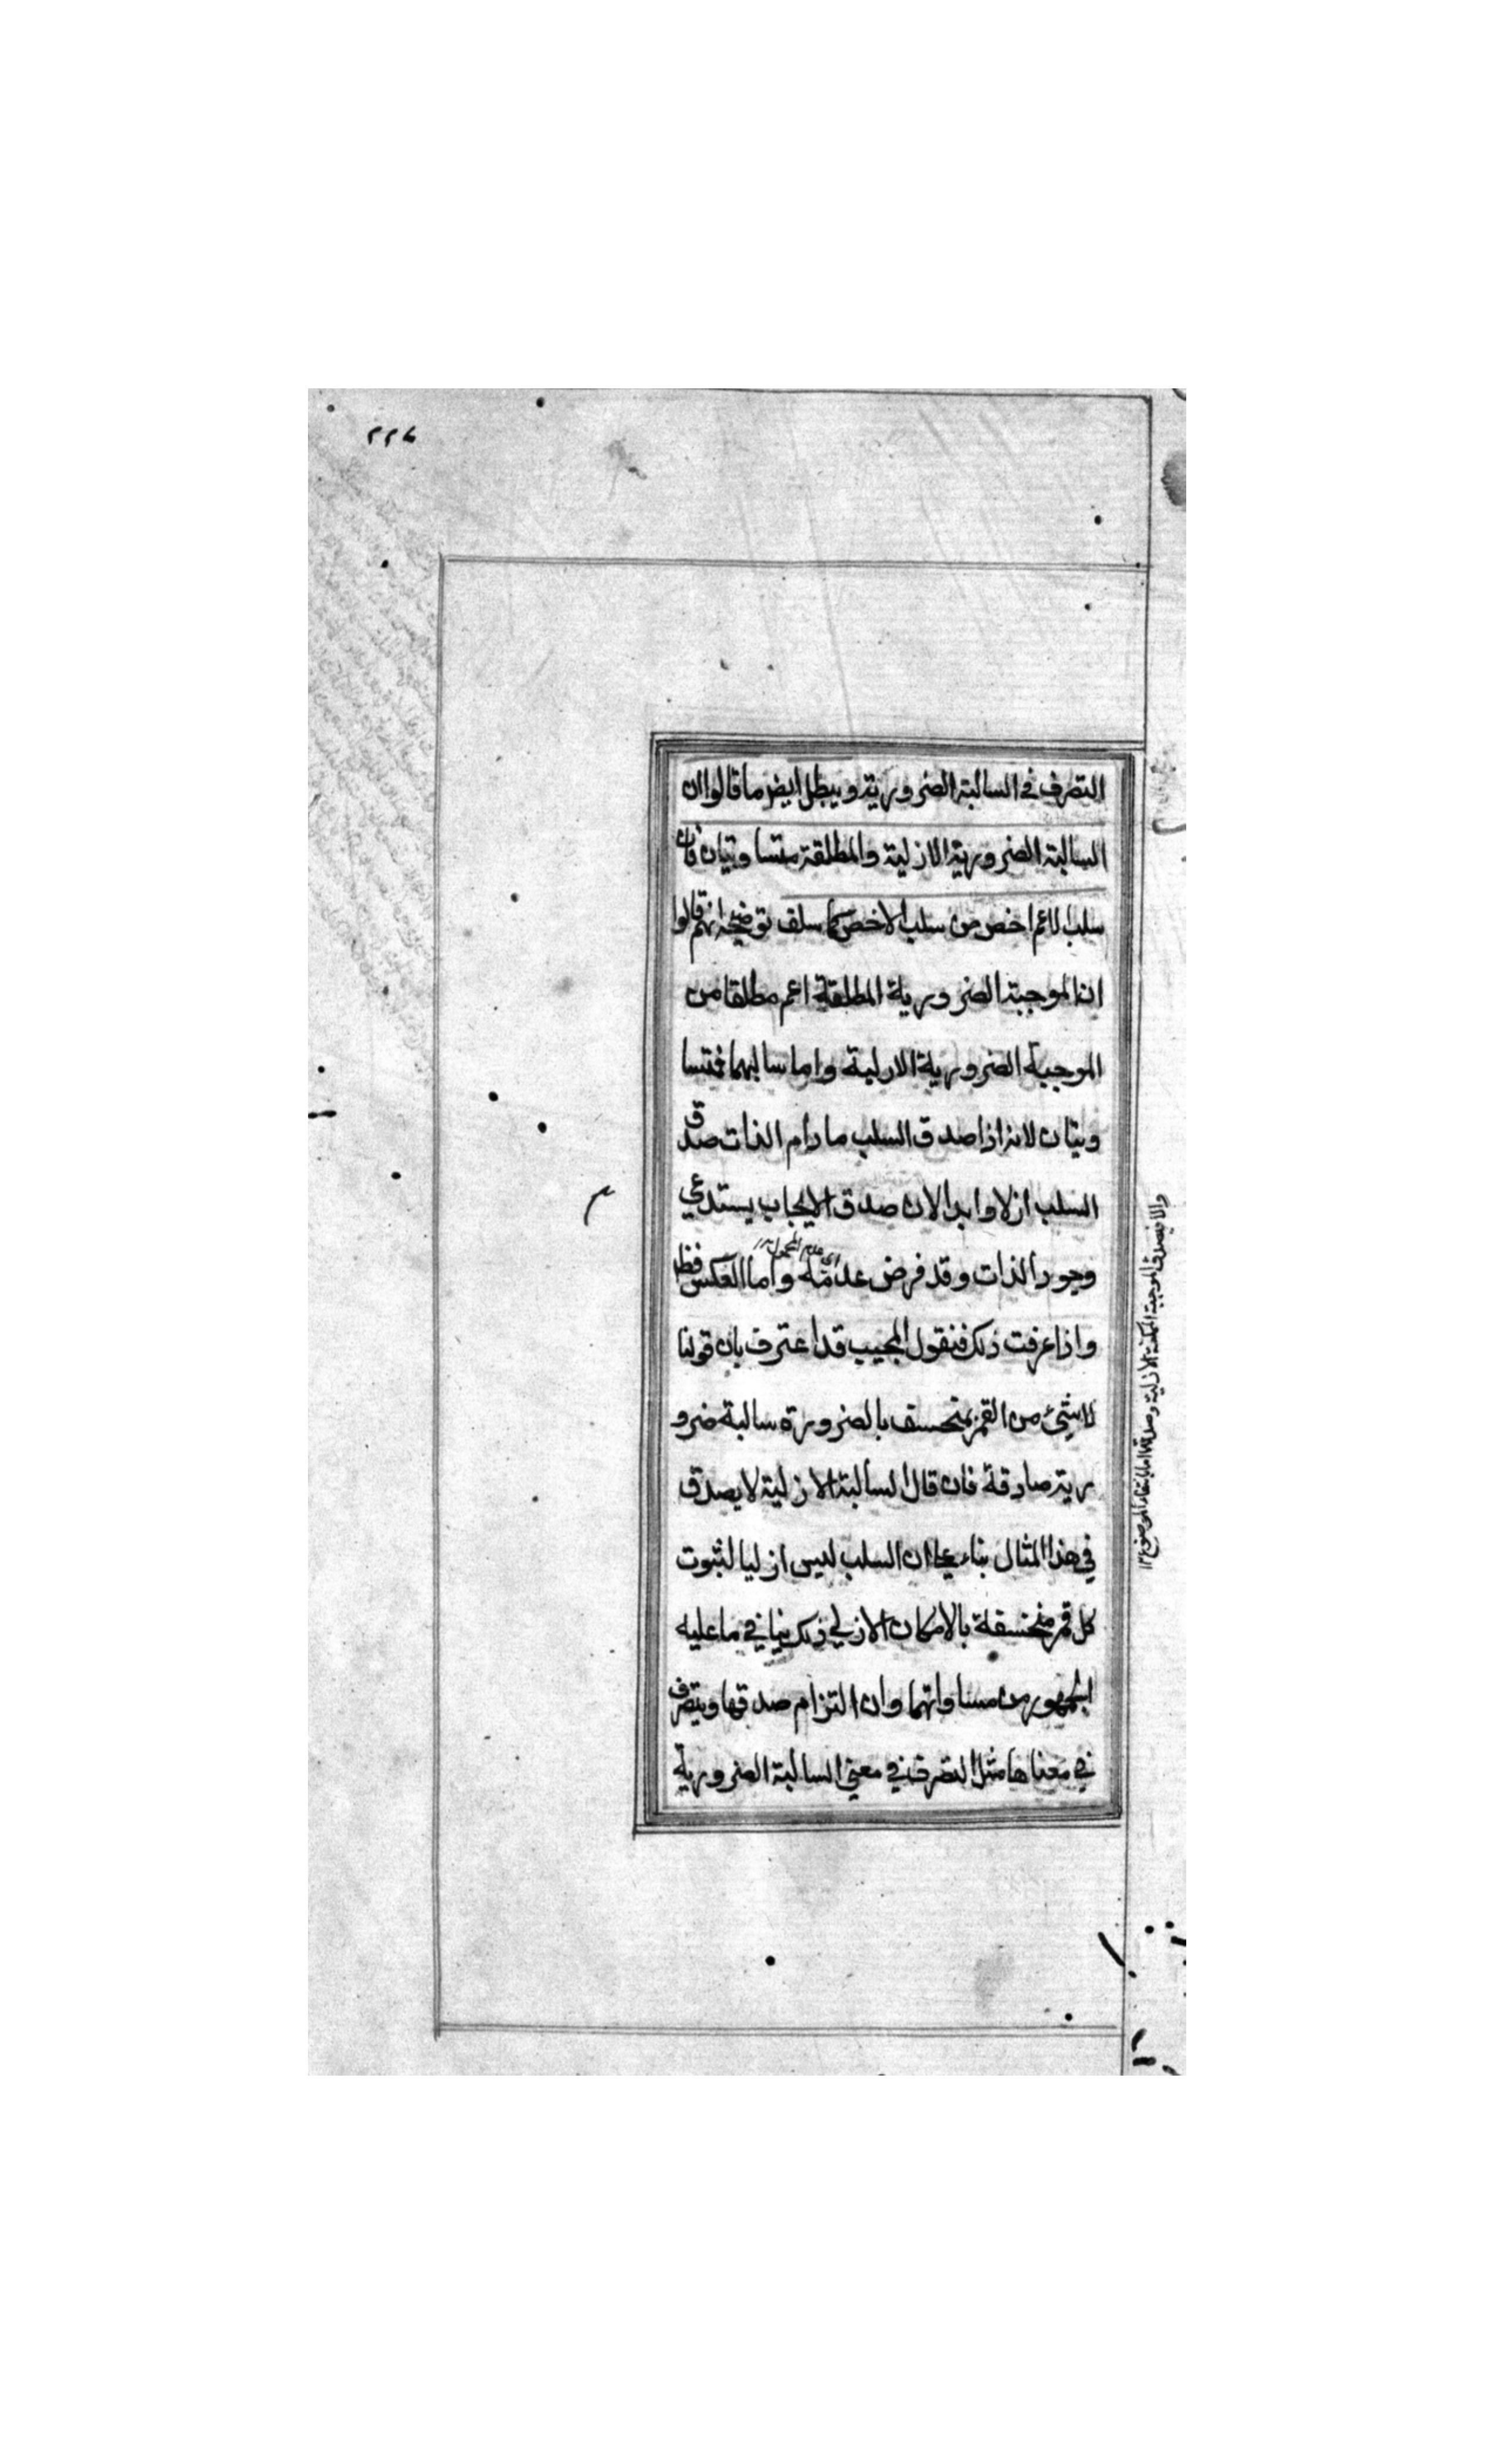 ٢٢٧
التصرف في السالبة الضرورية ويبطل ايض ما قالوا ان
السالبة الضرورية الازلية والمطلقة متساويتان فان
سلب الاعم اخص من سلب الاخص كما سلف توضيحه انهم قالوا
ان الموجبة الضرورية المطلقة اعم مطلقا من
الموجبة الضرورية الازلية واما سالبهما فمتسا
ويتان لانه اذا صدق السلب ما دام الذات صدق
السلب ازلا وابدا لان صدق الايجاب يستدعي
وجود الذات وقد فرض عدمه واما العكس فظ
واذا عرفت ذلك فنقول المجيب قد اعترف بان قولنا
لا شيء من القمر بمنخسف بالضرورة سالبة ضرو
رية صادقة فان قال السالبة الازلية لا يصدق
في هذا المثال بناء على ان السلب ليس ازليا لثبوت
كل قمر منخسفة بالامكان الازلي ذلك ينافي ما عليه
الجمهور من مساواتهما وان التزام صدقها ويتصرف
في معناها مثل التصرف في معنى السالبة الضرورية
والا فيصدق الموجبة الممكنة الازلية وصدقها اما بانتفاء الموضوع ١٢